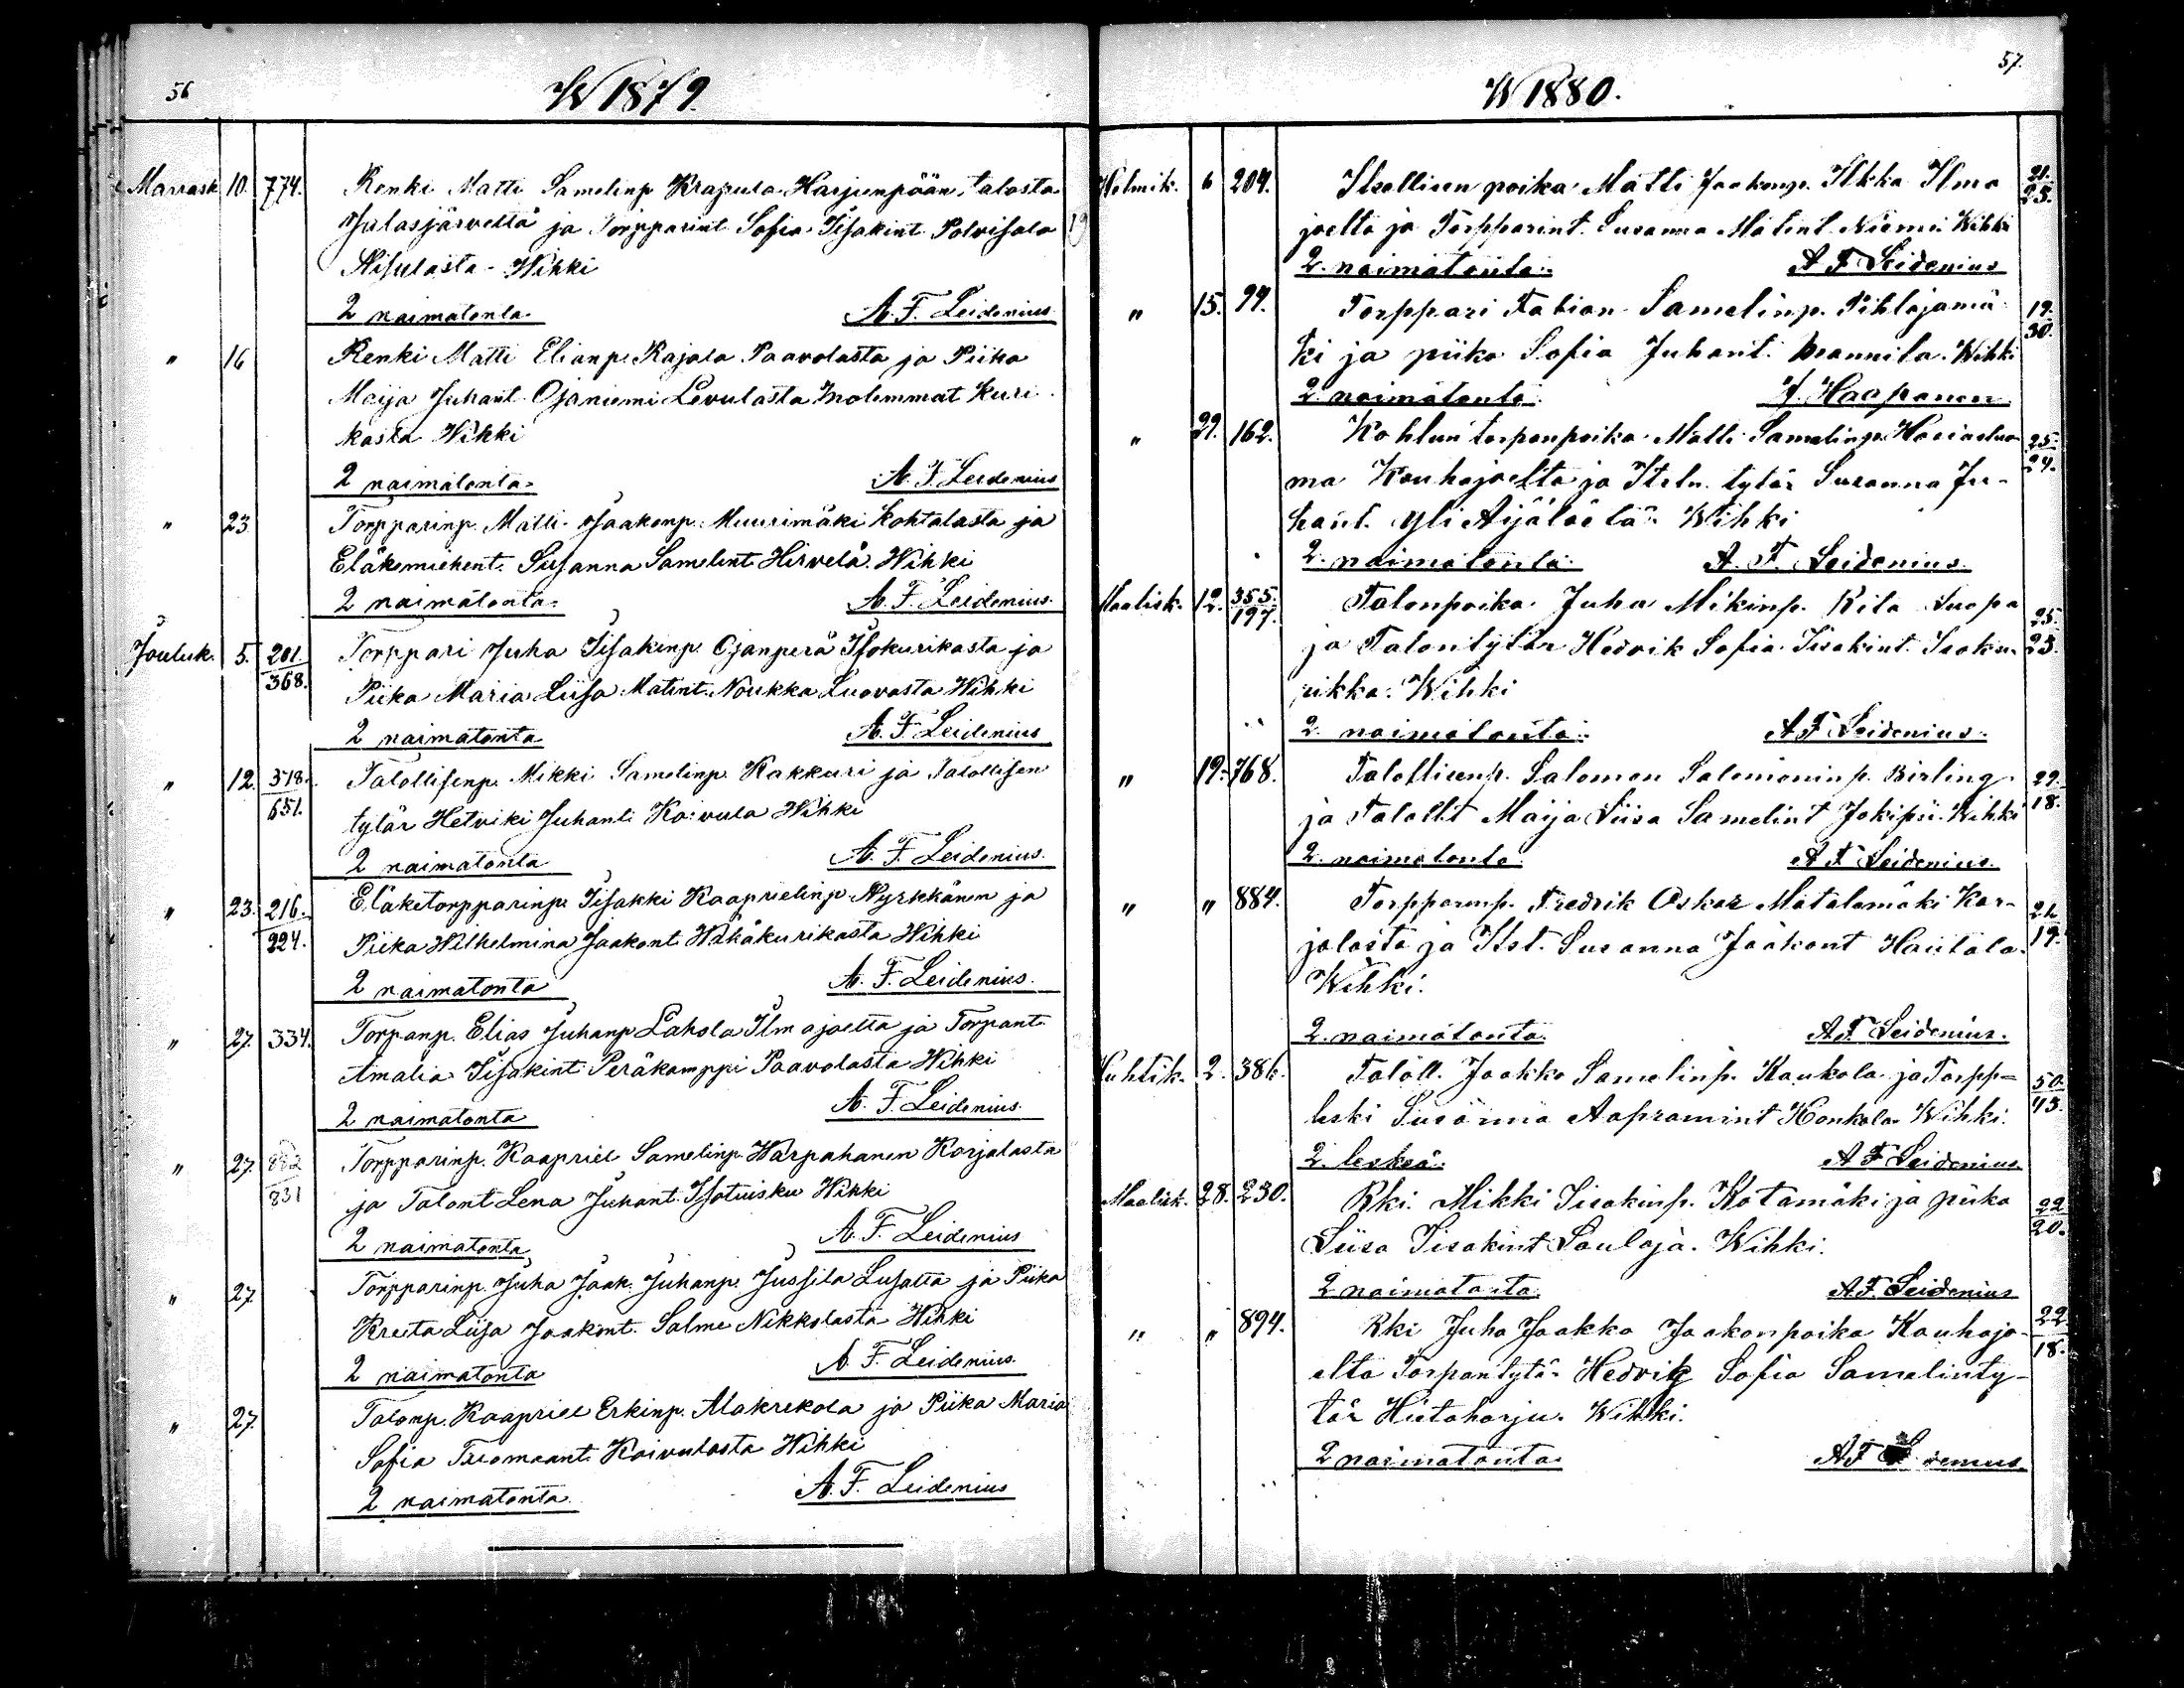 56
W 1879.
Marrask. 10. 774. Renki Matti Samelinp. Krapula Harjunpään talosta
Jalasjärveltä ja Torpparint. Sofia Iisakint. Polvisala
Wihki
2 naimatonta. A. F. Leidenius
" 16 Renki Matti Elianp. Rajala Paavolasta ja Piika
Maija Juhant. Ojaniemi Levulasta molemmat Kuri-
kasta Wihki
2 naimatonta. A. F. Leidenius
" 23 Torpparinp. Matti Jaakonp. Muurimäki Kohtalasta ja
Eläkemiehent. Susanna Samelint. Hirvelä. Wihki
2 naimatonta. A. F. Leidenius.
Jouluk. 5. 201./368. Torppari Juha Iisakinp. Ojanperä Isokurikasta ja
Piika Maria Liisa Matint. Noukka Luovasta Wihki
2 naimatonta A. F. Leidenius
" 12. 378./651. Talollisenp. Mikki Samelinp. Kakkuri ja Talollisen
tytär Hetviki Juhanti Koivula Wihki
2 naimatonta A. F. Leidenius.
" 23. 216./224. Eläketorpparinp. Iisakki Kaaprielinp. Nyrkkänen ja
Piika Wilhelmina Jaakont. Wähäkurikasta Wihki
2 naimatonta A. F. Leidenius.
" 27. 334. Torpanp. Elias Juhanp. Lahola Ilmajoelta ja Torpant.
Amalia Iisakint. Peräkamppi Paavolasta Wihki
2 naimatonta A. F. Leidenius.
" 27. 882/831 Torpparinp. Kaapriel Samelinp. Harpahanen Korjalasta
ja Talont. Lena Juhant. Isotuisku Wihki
2 naimatonta A. F. Leidenius
" 27. Torpparinp. Juha Jaak. Juhanp. Jussila Lusalta ja Piika
Kreeta Liisa Jaakont. Salme Nikkolasta Wihki
2 naimatonta A. F. Leidenius.
" 27. Talonp. Kaapriel Erkinp. Alakrekola ja Piika Maria
Sofia Tuomaant. Koivulasta Wihki
2 naimatonta. A. F. Leidenius
57.
W 1880.
Helmik. 6 204. Itsellisen poika Matti Jaakonp. Ilkka Ilma 21./23.
joelta ja Torpparint. Susanna Matint. Niemi. Wihki
2. naimatonta. A F Leidenius
" 15. 94. Torppari Fabian Samelinp. Pihlajamä 19./30.
ki ja piika Sofia Juhant. Mannila. Wihki
2 naimatonta. Haapanen
" 29. 162. Kohlun torpanpoika Matti Samelinp. Harjaluo 25./24.
ma Kauhajoelta ja Itseln. tytär Susanna Ju-
hant. Yli Äijälästä. Wihki
2. naimatonta. A. F. Leidenius.
Maalisk. 12. 355./197. Talonpoika Juha Mikinp. Rila Luopa 25./23.
ja Talontytär Hedvik Sofia Iisakint. Isoku-
rikka. Wihki
2. naimatonta. A F Leidenius.
" 19. 768. Talollisenp. Salomon Salomoninp. Birling 29./18.
ja Talollt. Maija Liisa Samelint Jokipii. Wihki
2. naimatonta. A F Leidenius.
" " 884. Torpparinp. Fredrik Oskar Matalamäki Kar- 21./19.
jalasta ja Itst. Susanna Jaakont Hautala.
Wihki.
2. naimatonta. A F. Leidenius.
Huhtik. 2. 386. Taloll. Jaakko Samelinp. Kaukola ja Torpp= 50./43.
leski Susanna Aapramint Honkala Wihki.
2. leskeä. A F Leidenius.
Maalisk. 28. 230. Rki. Mikki Iisakinp. Kotamäki ja piika 22/20.
Liisa Iisakint Laulaja. Wihki.
2 naimatonta. A. F. Leidenius
" " 894. Rki Juha Jaakko Jaakonpoika Kauhajo- 22/18.
elta Torpantytär Hedvig Sofia Samelinty-
tär Hietaharju. Wihki.
2 naimatonta.